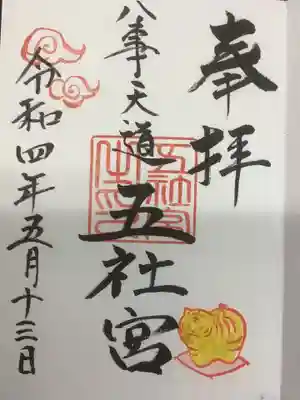 奉拝
八事天道五社宮
令和四年五月十三日